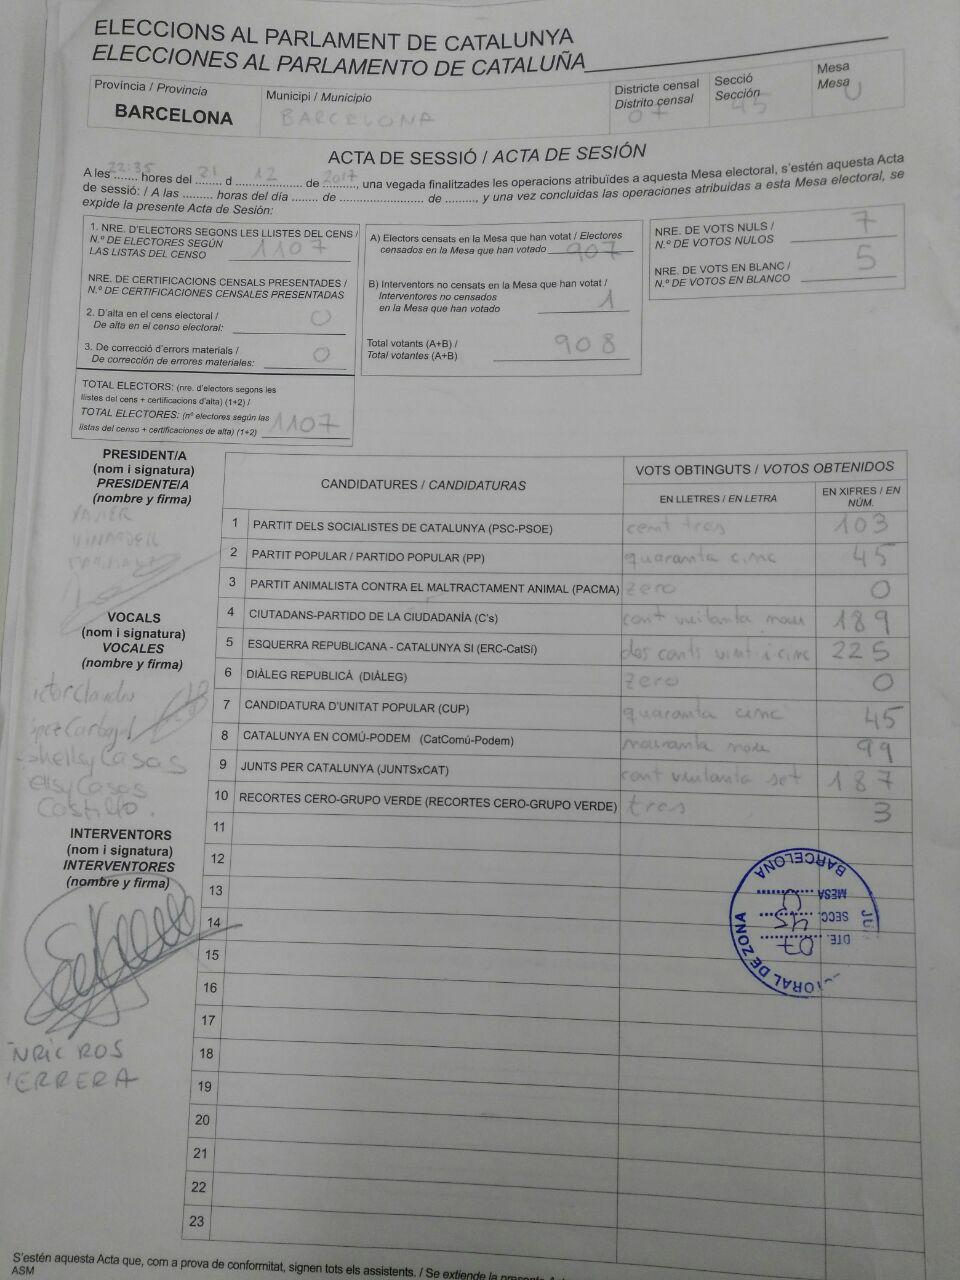 ELECCIONS AL PARLAMENT DE CATALUNYA
ELECCIONES AL PARLAMENTO DE CATALUÑA
Província / Provincia
BARCELONA
Municipi / Municipio
BARCELONA
Districte censal
Distrito censal
07
Secció
Sección
45
Mesa
Mesa
U
ACTA DE SESSIÓ / ACTA DE SESIÓN
A les 22:35 hores del 21 d 12 de 2017, una vegada finalitzades les operacions atribuïdes a aquesta Mesa electoral, s'estén aquesta Acta
de sessió: / A las ......... horas del día ........ de ........................ de ........, y una vez concluidas las operaciones atribuidas a esta Mesa electoral, se
expide la presente Acta de Sesión:
1. NRE. D'ELECTORS SEGONS LES LLISTES DEL CENS /
N.º DE ELECTORES SEGÚN
LAS LISTAS DEL CENSO 1107
NRE. DE CERTIFICACIONS CENSALS PRESENTADES /
N.º DE CERTIFICACIONES CENSALES PRESENTADAS
2. D'alta en el cens electoral /
De alta en el censo electoral: 0
3. De correcció d'errors materials /
De corrección de errores materiales: 0
TOTAL ELECTORS: (nre. d'electors segons les
llistes del cens + certificacions d'alta) (1+2) /
TOTAL ELECTORES: (nº electores según las
listas del censo + certificaciones de alta) (1+2) 1107
A) Electors censats en la Mesa que han votat / Electores
censados en la Mesa que han votado 907
B) Interventors no censats en la Mesa que han votat /
Interventores no censados
en la Mesa que han votado 1
Total votants (A+B) /
Total votantes (A+B) 908
NRE. DE VOTS NULS /
N.º DE VOTOS NULOS 7
NRE. DE VOTS EN BLANC /
N.º DE VOTOS EN BLANCO 5
PRESIDENT/A
(nom i signatura)
PRESIDENTE/A
(nombre y firma)
XAVIER
VOCALS
(nom i signatura)
VOCALES
(nombre y firma)
Shellsy Casas
ellsy Casas
Castillo.
INTERVENTORS
(nom i signatura)
INTERVENTORES
(nombre y firma)
NRIC ROS
ERRERA
CANDIDATURES / CANDIDATURAS
VOTS OBTINGUTS / VOTOS OBTENIDOS
EN LLETRES / EN LETRA
EN XIFRES / EN
NÚM.
1 PARTIT DELS SOCIALISTES DE CATALUNYA (PSC-PSOE) cent tres 103
2 PARTIT POPULAR / PARTIDO POPULAR (PP) quaranta cinc 45
3 PARTIT ANIMALISTA CONTRA EL MALTRACTAMENT ANIMAL (PACMA) zero 0
4 CIUTADANS-PARTIDO DE LA CIUDADANÍA (C's) cent vuitanta nou 189
5 ESQUERRA REPUBLICANA - CATALUNYA SI (ERC-CatSí) dos cents vint-i-cinc 225
6 DIÀLEG REPUBLICÀ (DIÀLEG) zero 0
7 CANDIDATURA D'UNITAT POPULAR (CUP) quaranta cinc 45
8 CATALUNYA EN COMÚ-PODEM (CatComú-Podem) noranta nou 99
9 JUNTS PER CATALUNYA (JUNTSxCAT) cent vuitanta set 187
10 RECORTES CERO-GRUPO VERDE (RECORTES CERO-GRUPO VERDE) tres 3
11
12
13
14
15
16
17
18
19
20
21
22
23
ORAL DE ZONA
BARCELONA
DTE. 07
SECC. 45
MESA U
S'estén aquesta Acta que, com a prova de conformitat, signen tots els assistents. / Se extiende la presente
ASM